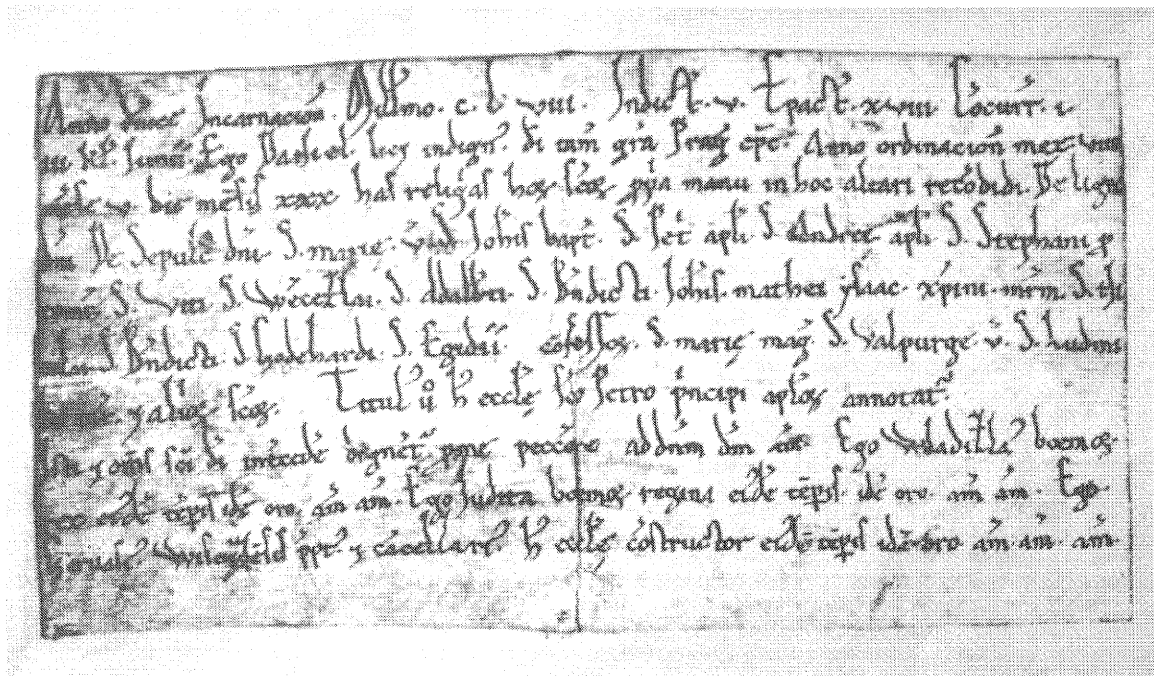 Anno dn̄icę Incarnacion̄. Millmo. c. l. viii. Indict. v. Epact. xviii Concurr. i
iii kl. Iunii. Ego Daniel. licet indign. di tam̄ gr̄a Prag ep̄c. Anno ordinacion̄ meę. viiii
has reliq̄as hos sc̄os p̄pa manu in hoc altari recōdidi. De ligno
dn̄i De Sepulc dn̄i. S. marię. Iohis bapt. S. Pet apli S Andreę apli S Stephani p
S. Viti S. Wēcezlai. S. Adalb̄ti. S. B̄ndicti. Iohis. mathei ysaac. xp̄ini. mr̄m. S.
S B̄ndicti. S. Godehardi. S. Egidii. cōfessoꝝ. S. marię maḡ. S. Valpurgę v̄. S. Ludmi
⁊ alioꝝ sc̄oꝝ. Titul v̄ h̄ ecclę sc̄o Petro p̄ncipi aploꝝ annotat.
⁊ om̄s sc̄i di int̄cedē dign̄et. p̄ me peccōre ad dn̄m dm̄ am̄. Ego Wladizla boemoꝝ.
rex eidē tēpis idē oro. am̄ am̄. Ego Iudita boemoꝝ regina eidē tēpis. idē oro. am̄ am̄. Ego
p̄pt. ⁊ cācellari. h̄ ecclę cōstructor eidē tēpis idē oro am̄. am̄. am̄.